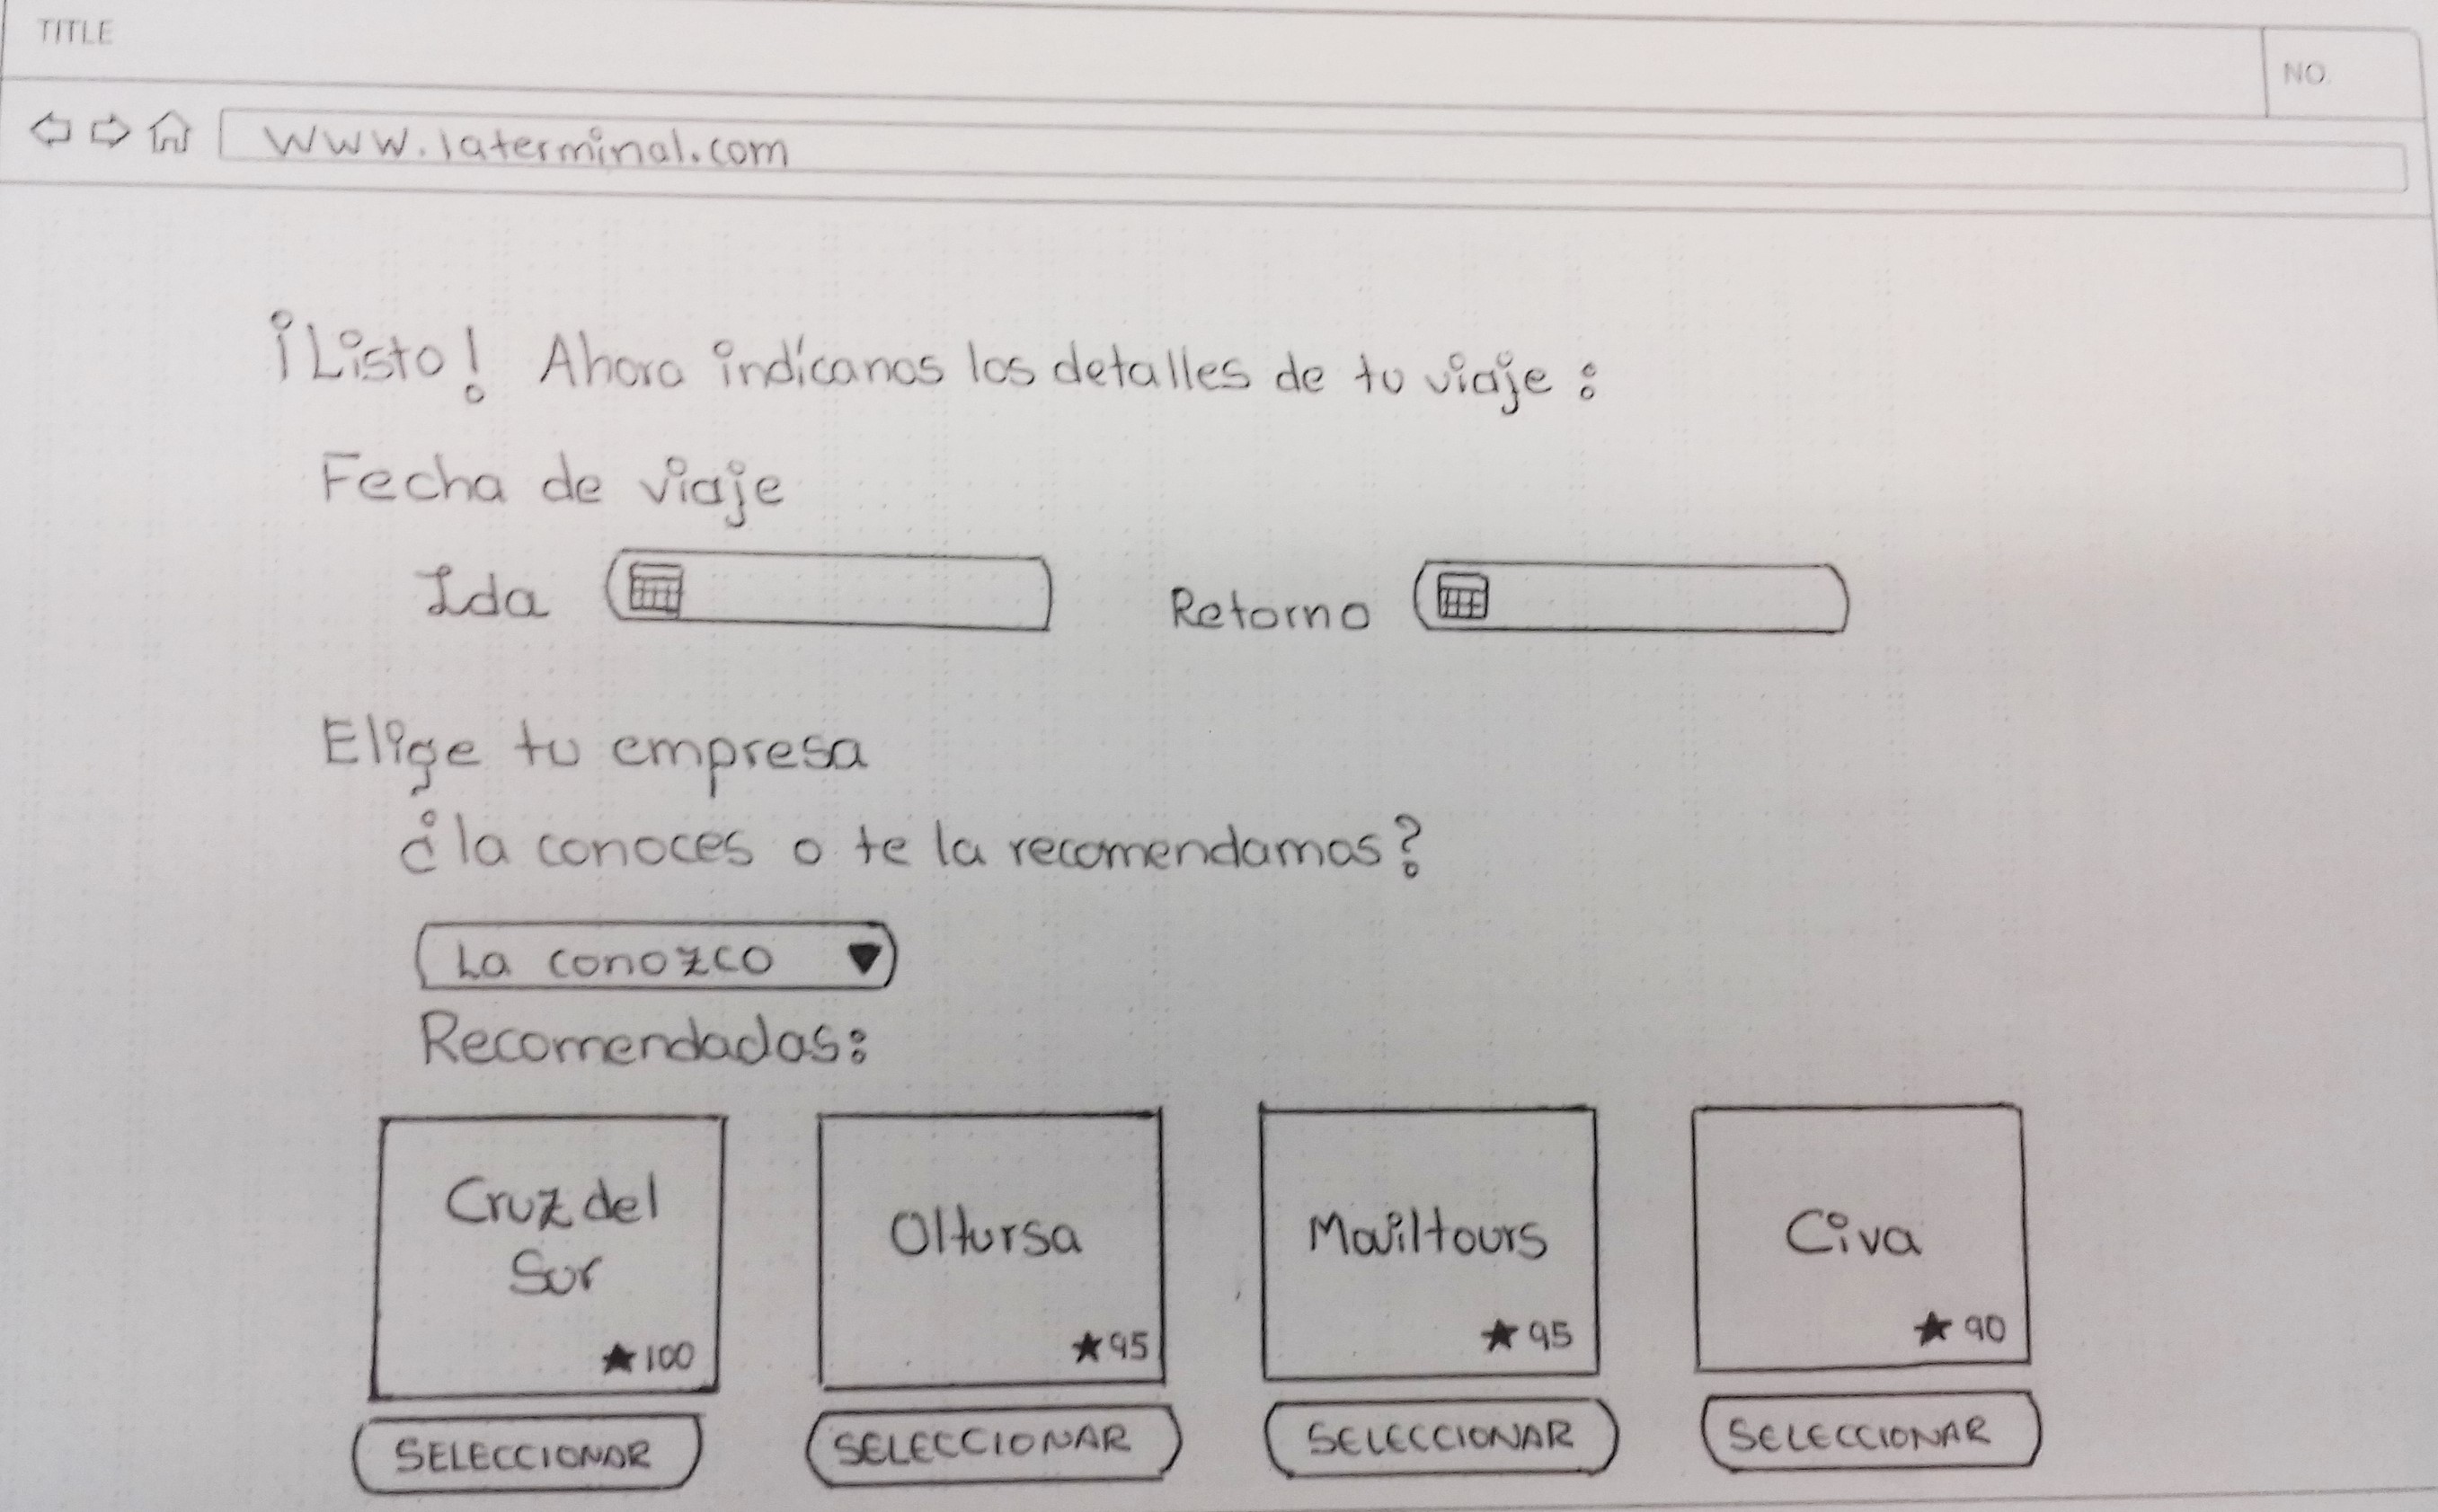 TITLE
NO.
www.laterminal.com
¡Listo! Ahora indícanos los detalles de tu viaje:
Fecha de viaje
Ida
Retorno
Elige tu empresa
¿la conoces o te la recomendamos?
La conozco
Recomendadas:
Cruz del
Sur
★100
Oltursa
★95
Moviltours
★95
Civa
★90
SELECCIONAR
SELECCIONAR
SELECCIONAR
SELECCIONAR